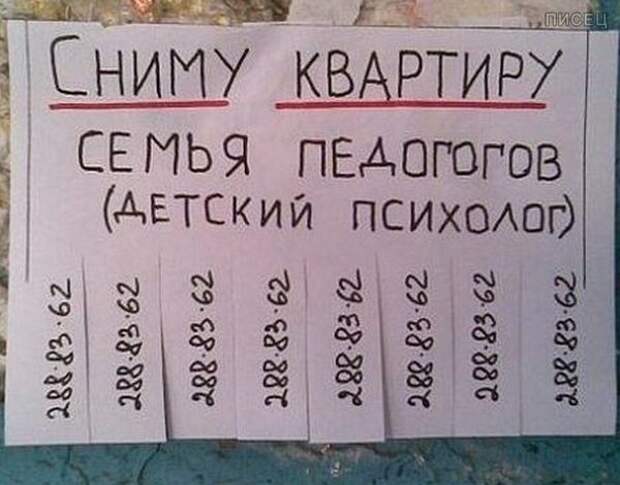 ПИСЕЦ
СНИМУ КВАРТИРУ
СЕМЬЯ ПЕДОГОГОВ
(ДЕТСКИЙ ПСИХОЛОГ)
288-83-62
288-83-62
288-83-62
288-83-62
288-83-62
288-83-62
288-83-62
288-83-62